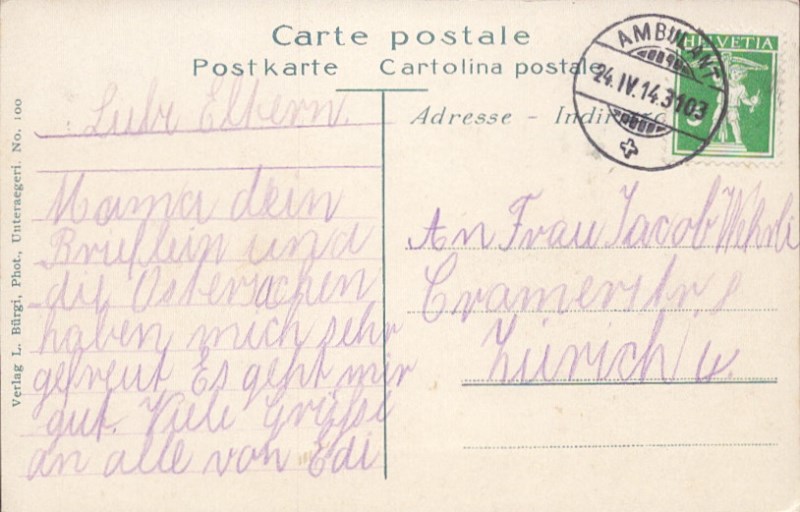 Carte postale
Postkarte Cartolina postale
AMBULANT
24.IV.14.3103
HELVETIA
Adresse - Indirizzo
Verlag L. Bürgi, Phot., Unteraegeri. No. 100
Liebe Eltern.
Mama dein
Brieflein und
die Ostersachen
haben mich sehr
gefreut Es geht mir
gut. Viele Grüsse
an alle von Edi
An Frau Jacob Wehrli
Cramerstr.
Zürich 4.